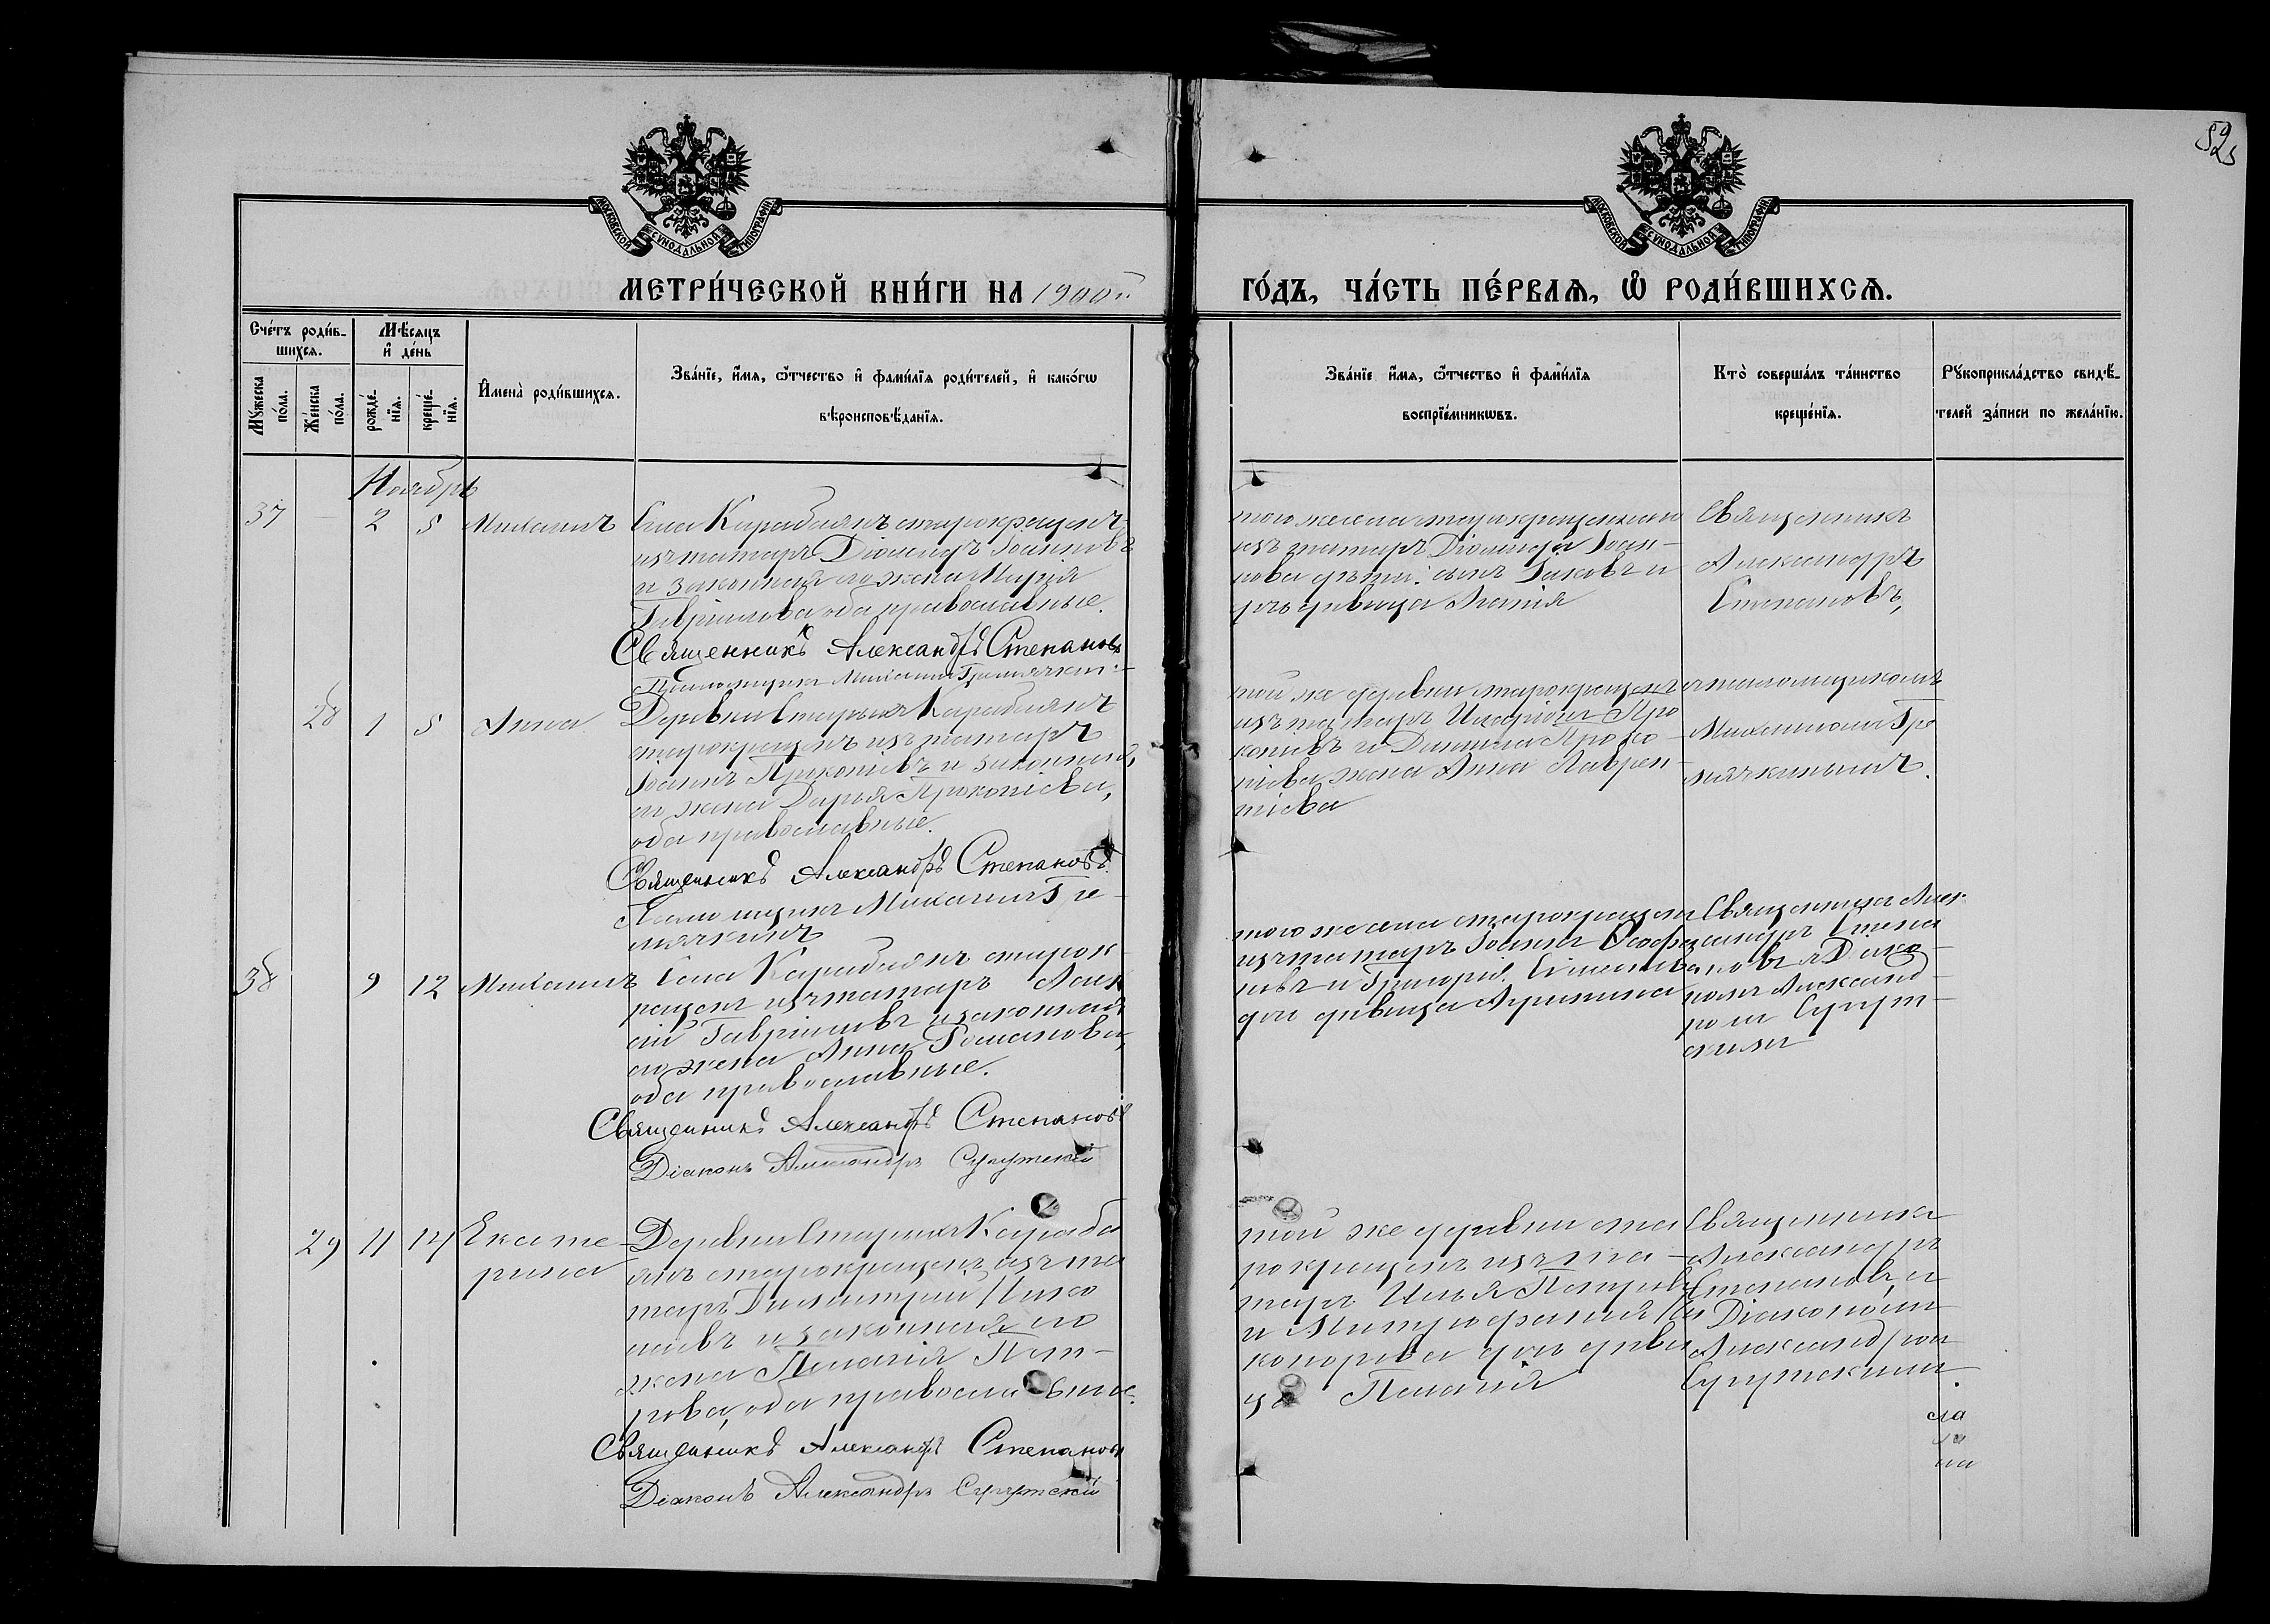 525
МОСКОВСКОЙ СѴНОДАЛЬНОЙ ТИПОГРАФІИ
МОСКОВСКОЙ СѴНОДАЛЬНОЙ ТИПОГРАФІИ
МЕТРИ́ЧЕСКОЙ КНИ́ГИ НА 1900й
ГО́ДЪ, ЧА́СТЬ ПЕ́РВАѦ, Ѡ҆ РОДИ́ВШИХСѦ.
Сче́тъ роди́в-
шихсѧ.
Мꙋ́жеска
по́ла.
Же́нска
по́ла.
Мѣ́сѧцъ
и҆ де́нь
рожде́-
нїѧ.
креще́-
нїѧ.
И҆мена̀ роди́вшихсѧ.
Зва́нїе, и҆́мѧ, ѻ҆́тчество и҆ фами́лїѧ роди́телей, и҆ како́гѡ
вѣроисповѣ́данїѧ.
Зва́нїе и҆́мѧ, ѻ҆́тчество и҆ фами́лїѧ
воспрїе́мникѡвъ.
Кто̀ соверша́лъ та́инство
креще́нїѧ.
Рꙋкоприкла́дство свидѣ́-
телей за́писи по жела́нїю.
Ноябрь
37 — 2 5 Михаилъ
Села Карабаянъ старокрещенъ
изъ татаръ Діомидъ Іоанновъ
и законная его жена Марія
Гавріилова оба православные.
Священникъ Александръ Степановъ
Псаломщикъ Михаилъ Гремячкинъ
того же села старокрещенаго
изъ татаръ Діомида Іоан-
нова дѣти: сынъ Іаковъ и
дѣвица
Священникъ
Александръ
Степановъ,
28 1 5 Анна
Деревни Старыхъ Карабаянъ
старокрещенъ изъ татаръ
Іоаннъ Прокопіевъ и законная
его жена Дарья Прокопіева,
оба православные.
Священникъ Александръ Степановъ
Псаломщикъ Михаилъ Гре-
мячкинъ
той же деревни старокрещенъ
изъ татаръ Иларіонъ Про
копіевъ и Даниила Проко-
піева жена Анна Лаврен-
тіева
псаломщикомъ
Михаиломъ Гре
мячкинымъ.
38 9 12 Михаилъ
Села Карабаянъ старок
рещенъ изъ татаръ Алек
сій Гавріиловъ и законная
его жена Анна Романова,
оба православные.
Священникъ Александръ Степановъ
Діаконъ Александръ Сугутскій
того же села старокрещенъ
изъ татаръ Іоаннъ
и Григорія
дочь дѣвица
Священникъ Алек
сандръ Степа
новъ и Діако-
номъ Александ-
ромъ Сугут-
скимъ
29 11 14 Екате-
рина
Деревни Старыхъ Караба
янъ старокрещенъ изъ та
таръ Димитрій Нико
и законная его
жена Пелагія Пет-
рова, оба православные.
Священникъ Александръ Степановъ
Діаконъ Александръ Сугутскій
той же деревни ста
рокрещенъ изъ та-
таръ Илья Петровъ
и Митрофанія Ни
дочь дѣви
ца Пелагія
Священникъ
Александръ
Степановъ, и
Діакономъ
Александромъ
Сугутскимъ.